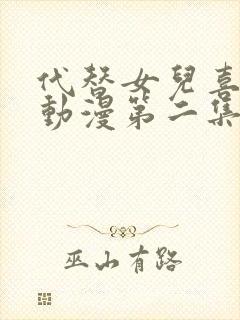 代替女兒喜
動漫第二集
巫山有路